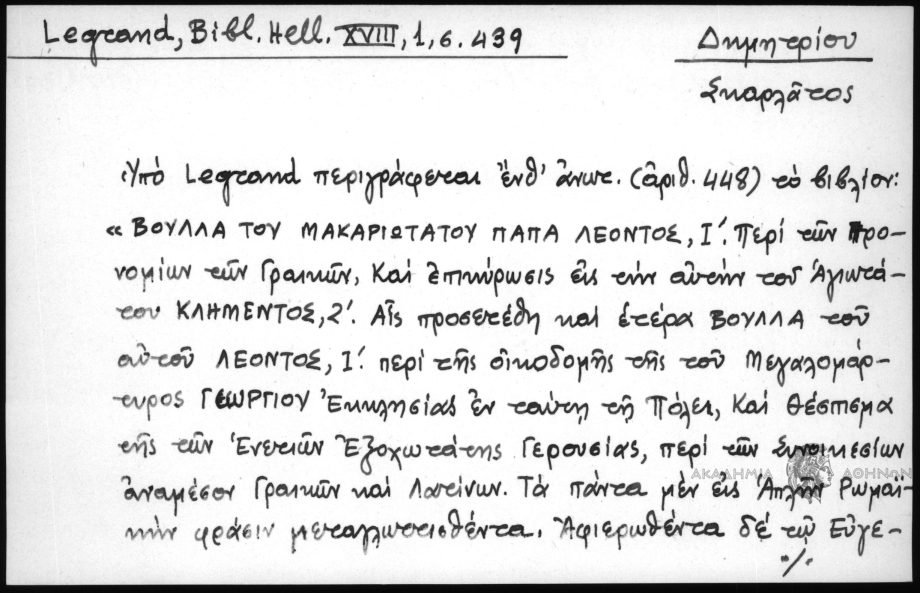 Legrand, Bibl. Hell. XVIII, 1, σ. 439
Δημητρίου
Σκαρλᾶτος
Ὑπό Legrand περιγράφεται ἔνθ' ἄνωτ. (ἀριθ. 448) τό βιβλίον:
« ΒΟΥΛΛΑ ΤΟΥ ΜΑΚΑΡΙΩΤΑΤΟΥ ΠΑΠΑ ΛΕΟΝΤΟΣ, Ι΄. Περί τῶν Προ-
νομίων τῶν Γραικῶν, Καί ἐπικύρωσις εἰς τήν αὐτήν τοῦ Ἁγιωτά-
του ΚΛΗΜΕΝΤΟΣ, Ζ΄. Αἷς προσετέθη καί ἑτέρα ΒΟΥΛΛΑ τοῦ
αὐτοῦ ΛΕΟΝΤΟΣ, Ι΄. περί τῆς οἰκοδομῆς τῆς τοῦ Μεγαλομάρ-
τυρος ΓΕΩΡΓΙΟΥ Ἐκκλησίας ἐν ταύτῃ τῇ Πόλει, Καί θέσπισμα
τῆς τῶν Ἐνετῶν Ἐξοχωτάτης Γερουσίας, περί τῶν Συνοικεσίων
ἀναμέσον Γραικῶν καί Λατίνων. Τά πάντα μέν εἰς Ἁπλῆν Ρωμαϊ-
κήν φράσιν μεταγλωττισθέντα. Ἀφιερωθέντα δέ τῷ Εὐγε-
·/.
ΑΚΑΔΗΜΙΑ ΑΘΗΝΩΝ